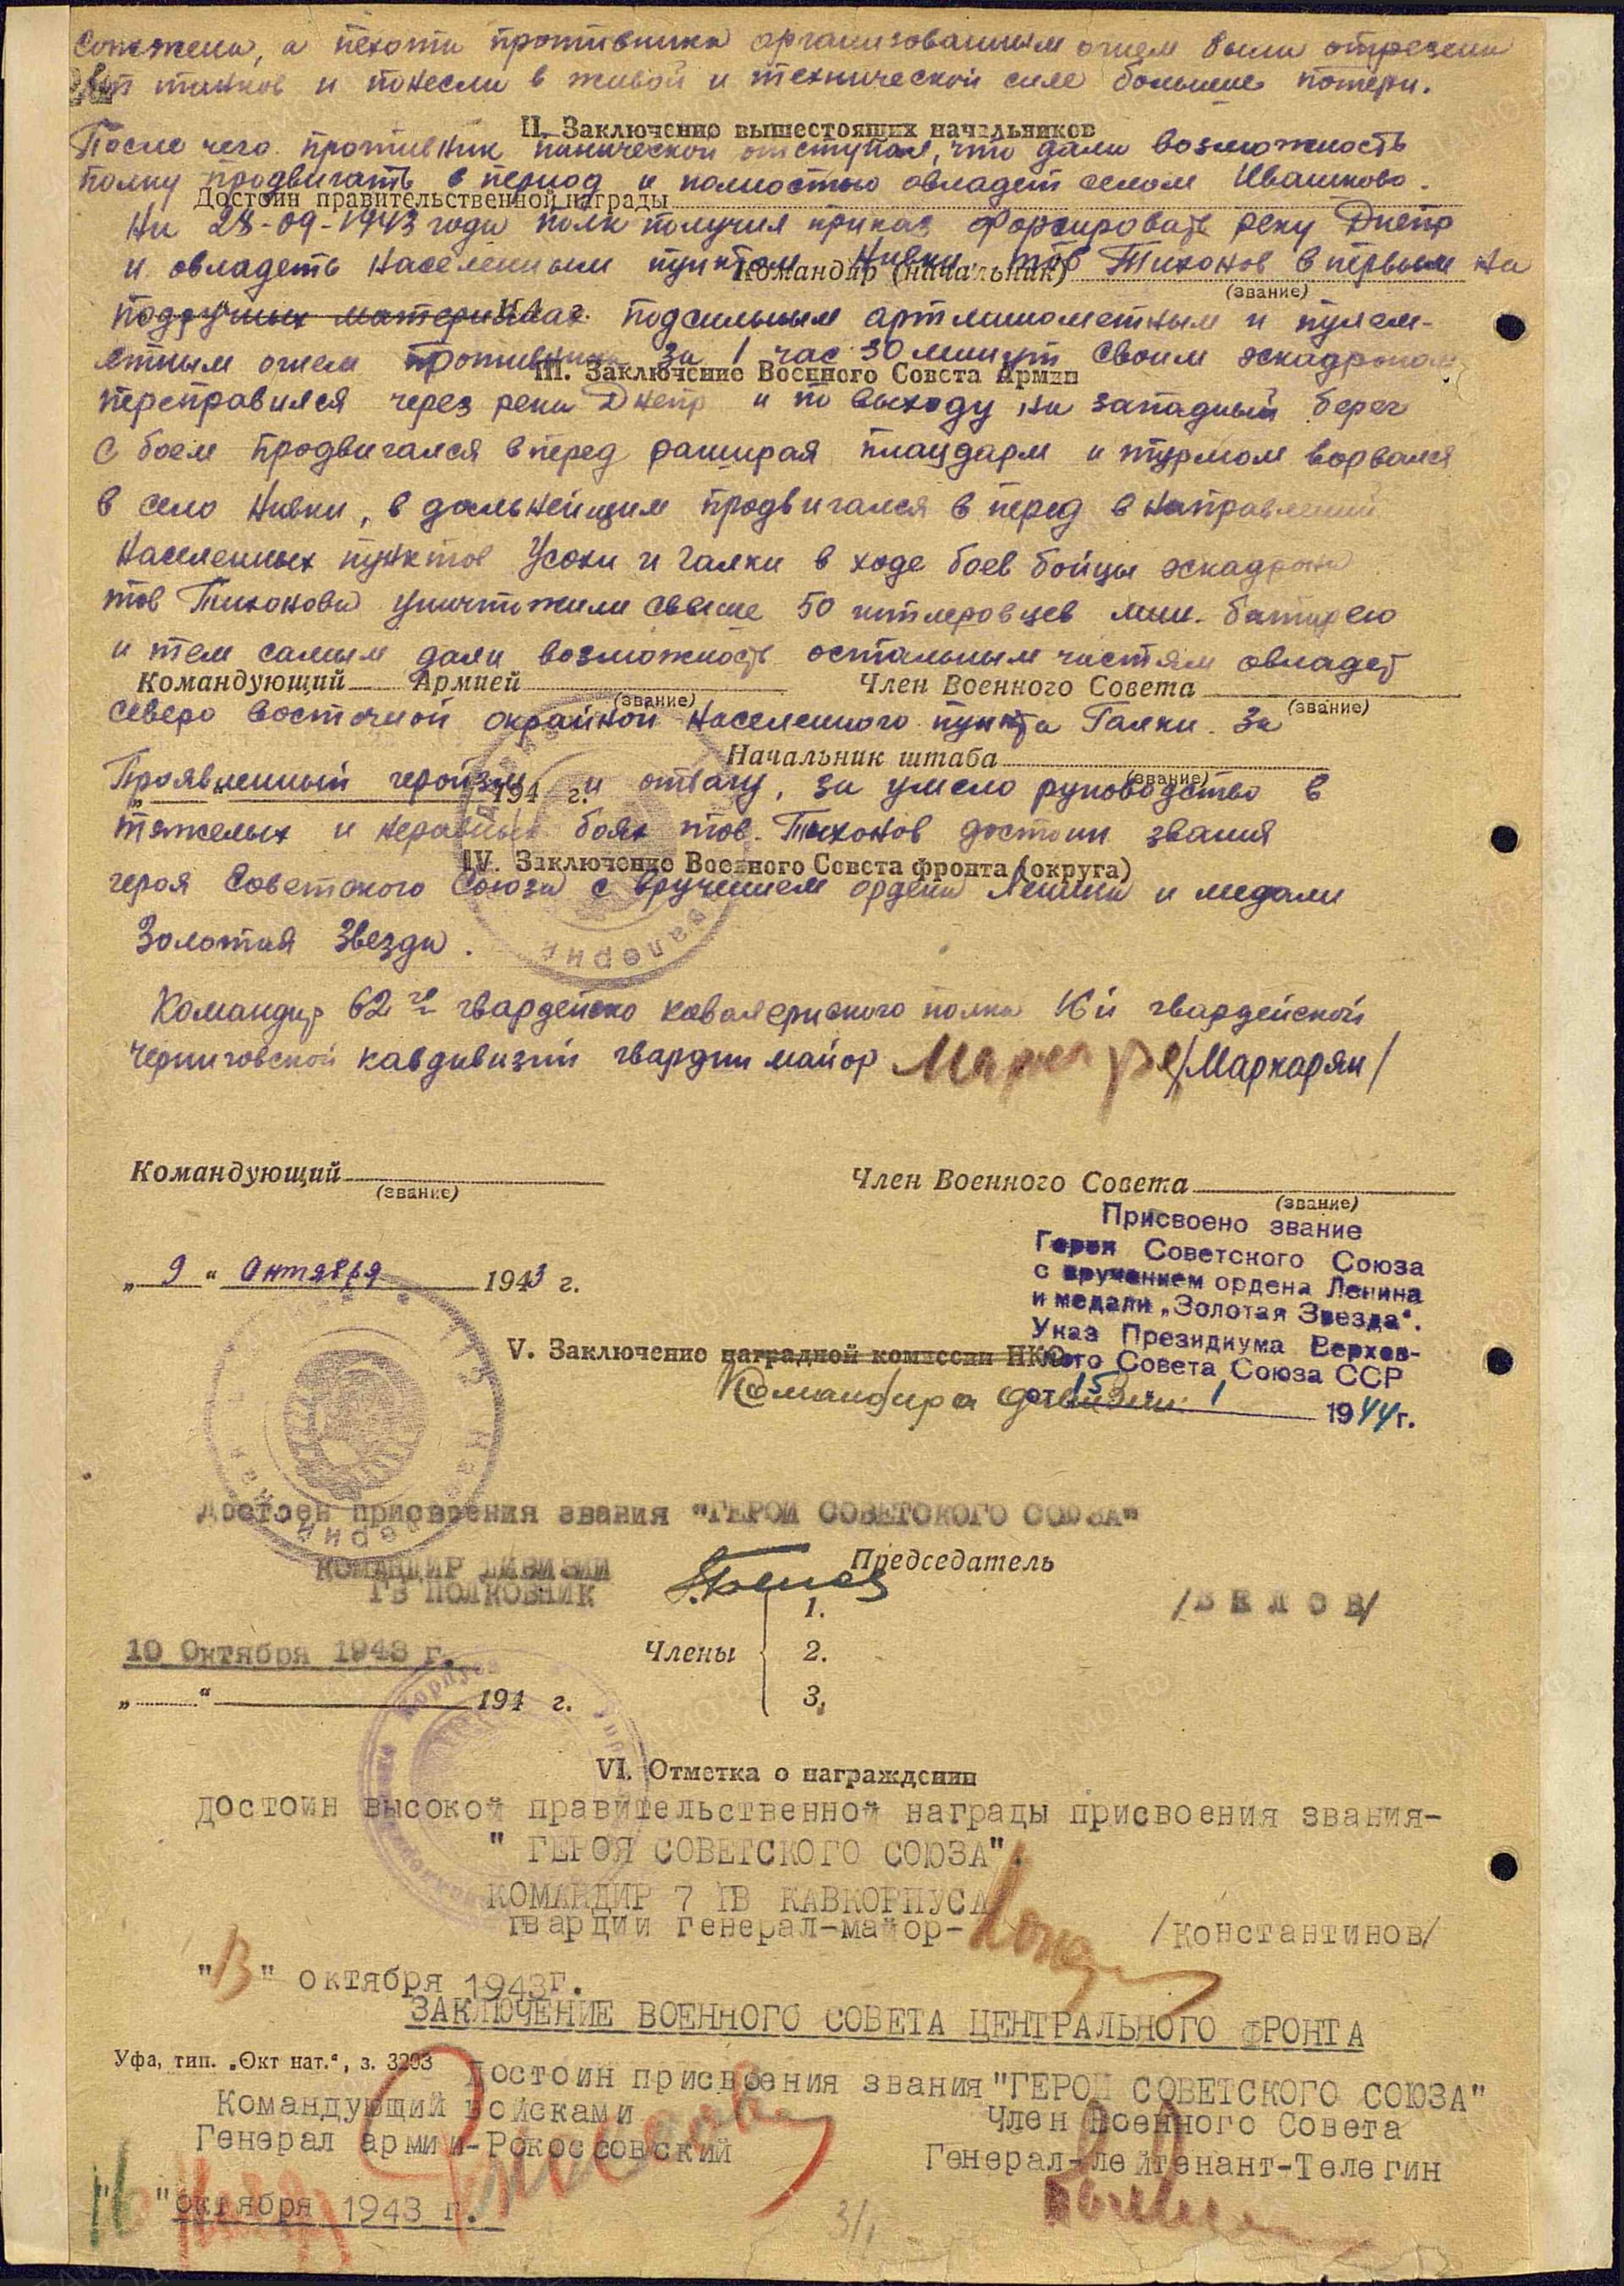 сожжены, а пехота противника организованным огнем была отрезана
от танков и понесли в живой и технической силе большие потери.
II. Заключение вышестоящих начальников
После чего противник панической отступал, что дали возможность
полку продвигать в период и полностью овладет селом Ивашково.
Достоин правительственной награды
На 28-09-1943 года полк получил приказ форсировать реку Днепр
и овладеть населенным пунктом Нивки тов Тихонов в первым на
Командир (начальник)
(звание)
подручных материалах подсильным артминометным и пулем-
етным огнем противника за 1 час 30 минут своим эскадроном
III. Заключение Военного Совета Армии
переправился через реки Днепр и по выходу на западный берег
с боем продвигался вперед расширая плацдарм и турмом ворвался
в село Нивки, в дальнейщим продвигался в перед в направлений
населенных пунктов Усохи и Галки в ходе боев бойцы эскадрона
тов Тихонова уничтожили свыше 50 гитлеровцев мин. батарею
и тем самым дали возможность остальным частям овладет
Командующий Армией
Член Военного Совета
(звание)
(звание)
северо восточной окрайной населенного пункта Галки. За
Начальник штаба
(звание)
Проявленный геройзм и отвагу, за умело руководство в
„ “ 194 г.
тяжелых и неравных боях тов. Тихонов достоин звания
IV. Заключение Военного Совета фронта (округа)
героя Советского Союза с вручением ордена Ленина и медали
Золотая Звезда.
Командир 62 го гвардейско кавалериского полка 16й гвардейской
черниговской кавдивизий гвардии майор /Маркарян/
Командующий
(звание)
Член Военного Совета
(звание)
Присвоено звание
Героя Советского Союза
с вручением ордена Ленина
и медали „Золотая Звезда“.
Указ Президиума Верхов-
ного Совета Союза ССР
от 15 1 1944 г.
„ 9 “ Октября 1943 г.
V. Заключение наградной комиссии НКО
Командира дивизии
достоен присвоения звания "ГЕРОЙ СОВЕТСКОГО СОЮЗА"
Председатель
КОМАНДИР ДИВИЗИИ
ГВ ПОЛКОВНИК
/БЕЛОВ/
1.
10 Октября 1943 г.
Члены
2.
„ “ 194 г.
3.
VI. Отметка о награждении
достоин высокой правительственной награды присвоения звания-
" ГЕРОЯ СОВЕТСКОГО СОЮЗА".
КОМАНДИР 7 ГВ КАВКОРПУСА
гвардии генерал-майор-
/константинов/
"13" октября 1943г.
ЗАКЛЮЧЕНИЕ ВОЕННОГО СОВЕТА ЦЕНТРАЛЬНОГО ФРОНТА
Уфа, тип. „Окт нат.“, з. 3293
Достоин присвоения звания "ГЕРОЙ СОВЕТСКОГО СОЮЗА"
Командующий войсками
Генерал армии-Рокоссовский
Член Военного Совета
Генерал-лейтенант-Телегин
" "октября 1943 г.